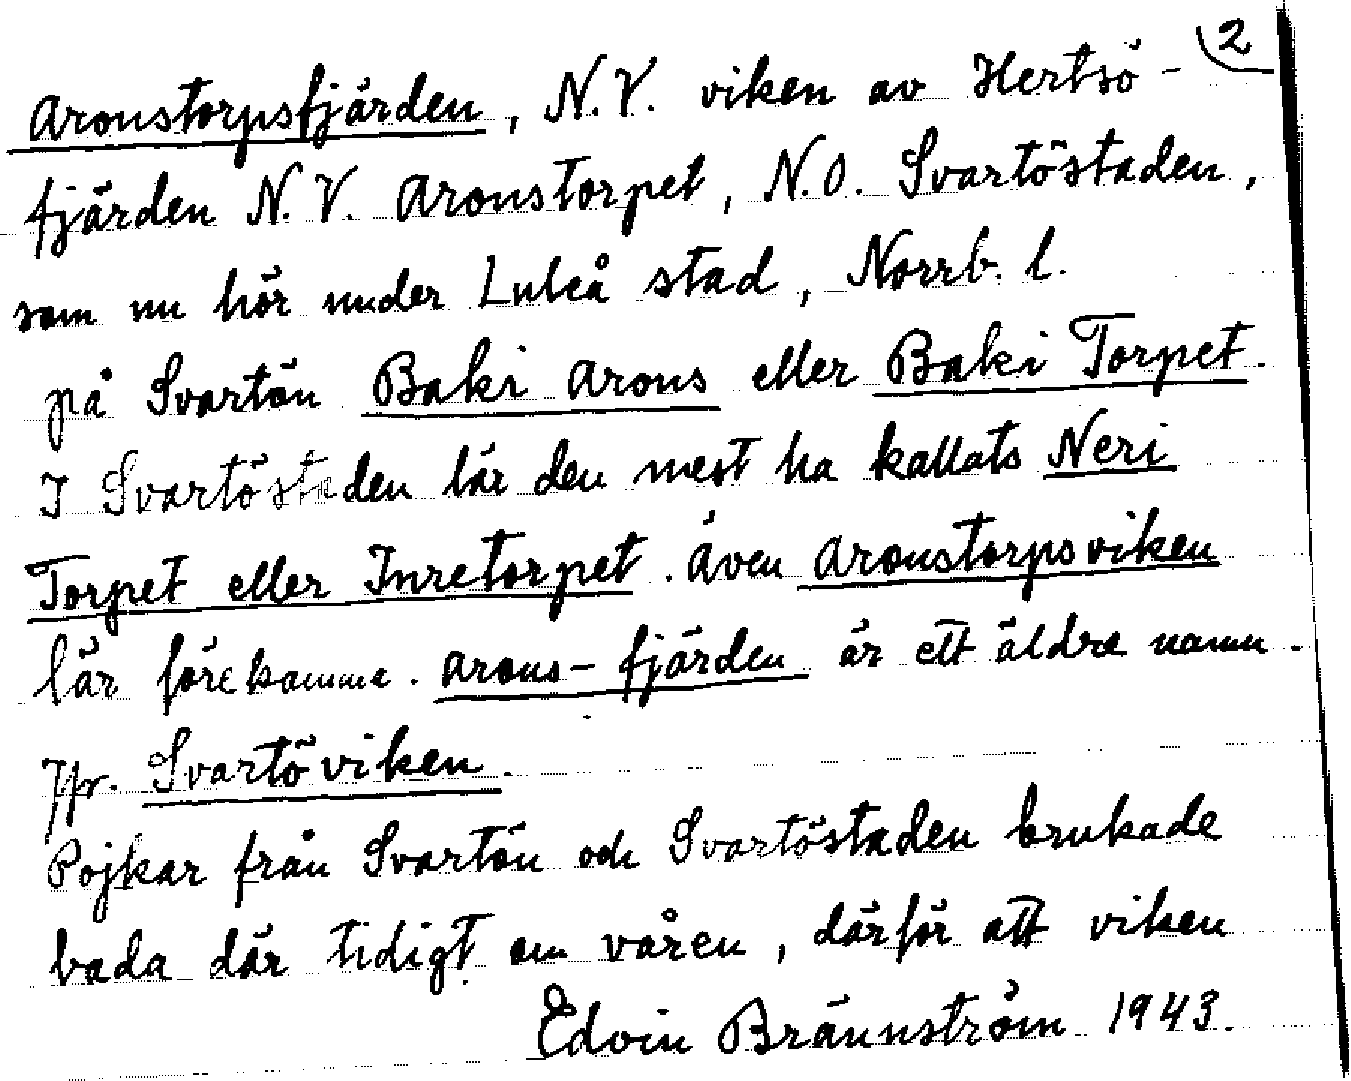 2
Aronstorpsfjärden, N.V. viken av Hertsö-
fjärden N.V. Aronstorpet, N.O. Svartöstaden,
som nu hör under Luleå stad, Norrb. l.
på Svartön Baki Arons eller Baki Torpet.
I Svartöstaden lär den mest ha kallats Neri
Torpet eller Inretorpet. Även Aronstorpsviken
lär förekomma. Arons-fjärden är ett äldre namn.
Jfr. Svartöviken.
Pojkar från Svartön och Svartöstaden brukade
bada där tidigt om våren, därför att viken
Edvin Brännström 1943.